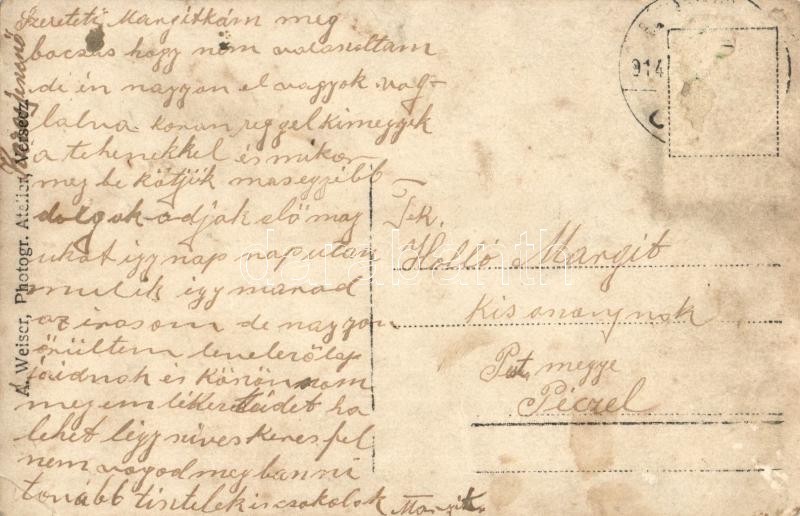 Szereteti Margitkám meg
bocsás hogy nem valaszoltam
de én nagyon el vagyok vog-
lalva koran reggel kimegyek
a tehenekkel és mikor
meg be kötjük masegyébb
dolgok adjak elö mag
ukat igy nap nap utan
mulik igy marad
az irasom de nagyon
örültem levelezölap
jaidnak és köszönom
meg emlékeretádet ha
lehet légy sives keres fel
nem vogod meg banni
tovább tisztelek is csokolok Margit
A. Weiser, Photogr. Atelier, Versecz
914
Tek.
Holló Margit
kisasszonynak
Pest megye
Péczel
darabanth